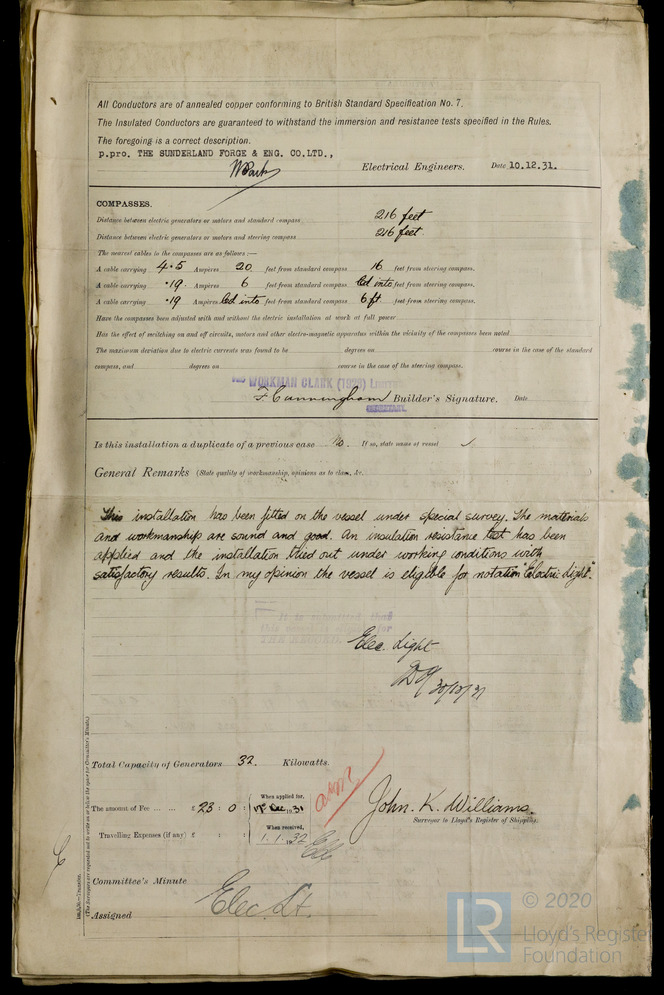 All Conductors are of annealed copper conforming to British Standard Specification No. 7.
The Insulated Conductors are guaranteed to withstand the immersion and resistance tests specified in the Rules.
The foregoing is a correct description.
p.pro. THE SUNDERLAND FORGE & ENG. CO.LTD.,
Electrical Engineers. Date 10.12.31.
COMPASSES.
Distance between electric generators or motors and standard compass 216 feet
Distance between electric generators or motors and steering compass 216 feet.
The nearest cables to the compasses are as follows :—
A cable carrying 4.5 Ampères 20 feet from standard compass 16 feet from steering compass.
A cable carrying .19. Ampères 6 feet from standard compass led into feet from steering compass.
A cable carrying .19 Ampères led into feet from standard compass 6 ft feet from steering compass.
Have the compasses been adjusted with and without the electric installation at work at full power
Has the effect of switching on and off circuits, motors and other electro-magnetic apparatus within the vicinity of the compasses been noted
The maximum deviation due to electric currents was found to be degrees on course in the case of the standard
compass, and degrees on course in the case of the steering compass.
FOR WORKMAN CLARK (1928) LIMITED
F. Cunningham Builder's Signature. Date
Is this installation a duplicate of a previous case No. If so, state name of vessel ✓
General Remarks (State quality of workmanship, opinions as to class, &c.)
This installation has been fitted on the vessel under special survey. The materials
and workmanship are sound and good. An insulation resistance test has been
applied and the installation tried out under working conditions with
satisfactory results. In my opinion the vessel is eligible for notation "Electric Light".
It is submitted that
this vessel is eligible for
THE RECORD
Elec. Light
30/12/31
Total Capacity of Generators 32. Kilowatts.
The amount of Fee ... ... £ 23 : 0 : When applied for, 17th Dec. 1931
Travelling Expenses (if any) £ : : When received, 1.1.1932
John. K. Williams.
Surveyor to Lloyd's Register of Shipping.
Committee's Minute
Assigned Elec. Lt.
(The Surveyors are requested not to write on or below the space for Committee's Minute.)
LR
© 2020
Lloyd's Registe
Foundation